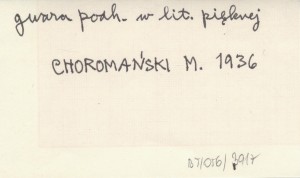 gwara podh. w lit. pięknej
CHOROMAŃSKI M. 1936